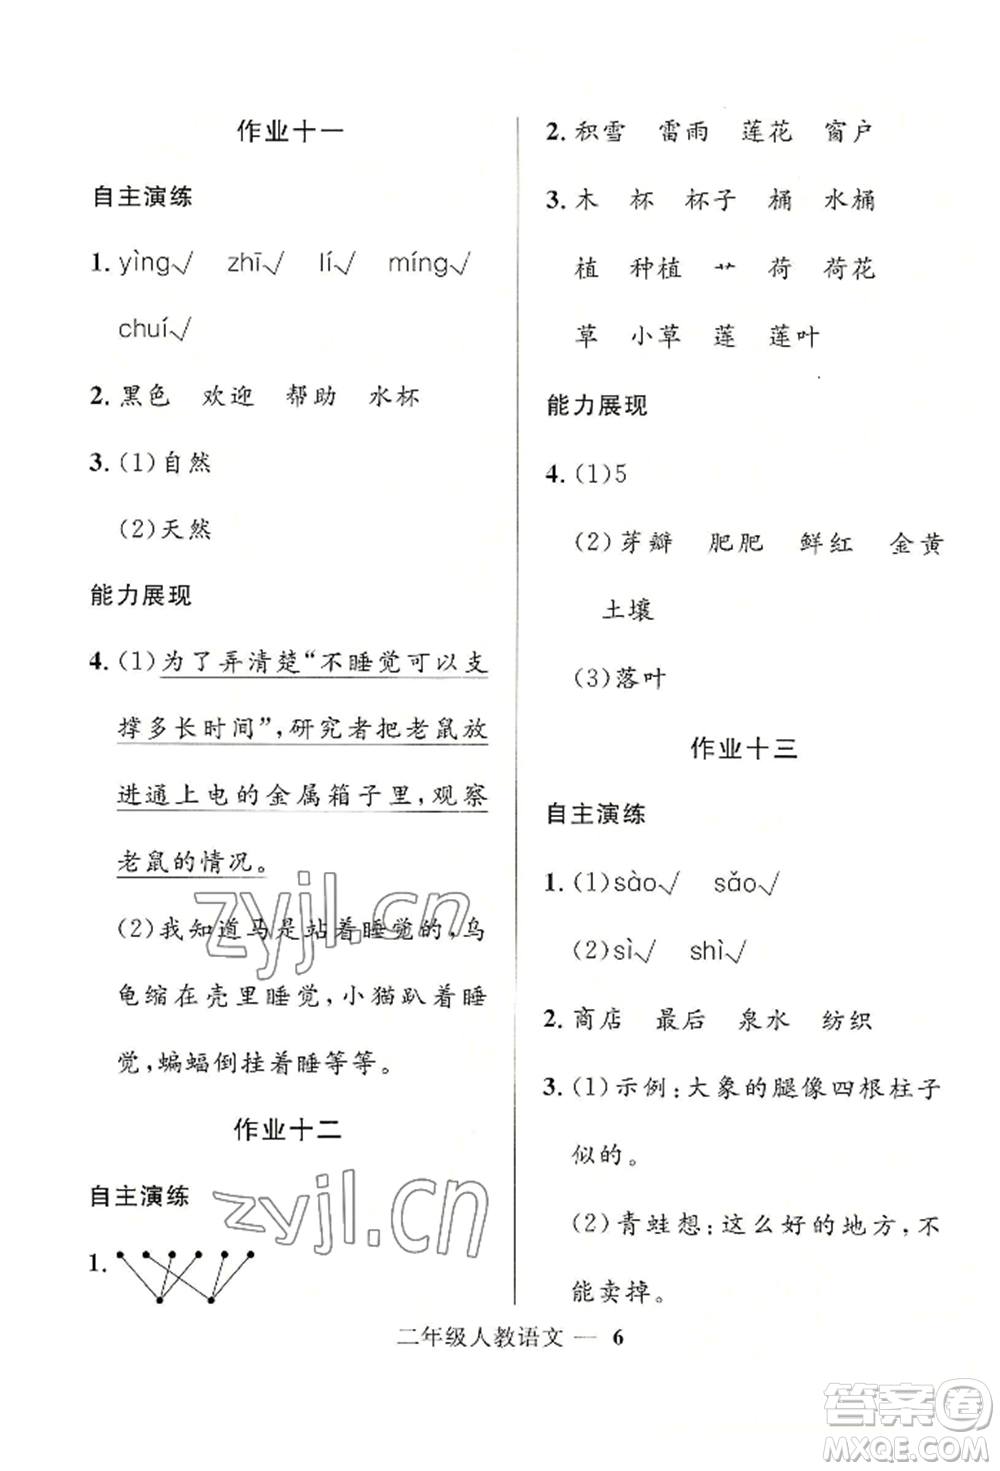 作业十一
自主演练
1. yìng√ zhī√ lí√ míng√
chuí√
2. 黑色 欢迎 帮助 水杯
3. (1)自然
(2)天然
能力展现
4. (1)为了弄清楚“不睡觉可以支
撑多长时间”,研究者把老鼠放
进通上电的金属箱子里,观察
老鼠的情况。
(2)我知道马是站着睡觉的,乌
龟缩在壳里睡觉,小猫趴着睡
觉,蝙蝠倒挂着睡等等。
作业十二
自主演练
1.
2. 积雪 雷雨 莲花 窗户
3. 木 杯 杯子 桶 水桶
植 种植 艹 荷 荷花
草 小草 莲 莲叶
能力展现
4. (1)5
(2)芽瓣 肥肥 鲜红 金黄
土壤
(3)落叶
作业十三
自主演练
1. (1)sào√ sǎo√
(2)sì√ shì√
2. 商店 最后 泉水 纺织
3. (1)示例:大象的腿像四根柱子
似的。
(2)青蛙想:这么好的地方,不
能卖掉。
二年级人教语文 — 6
zyjl.cn
zyjl.cn
答案卷
MXQE.COM